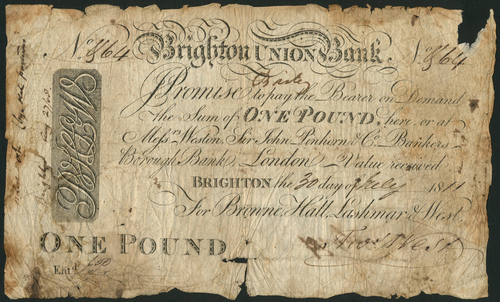 No. 864 Brighton Union Bank. No. 864
I Promise to pay the Bearer on Demand
the Sum of ONE POUND, here, or at
Messrs. Weston, Sir John Pinhorn & Co. Bankers
Borough Bank, London. Value received
BRIGHTON the 30 day of July 1811
For Browne, Hall, Lashmar & West
ONE POUND
Entd.
West